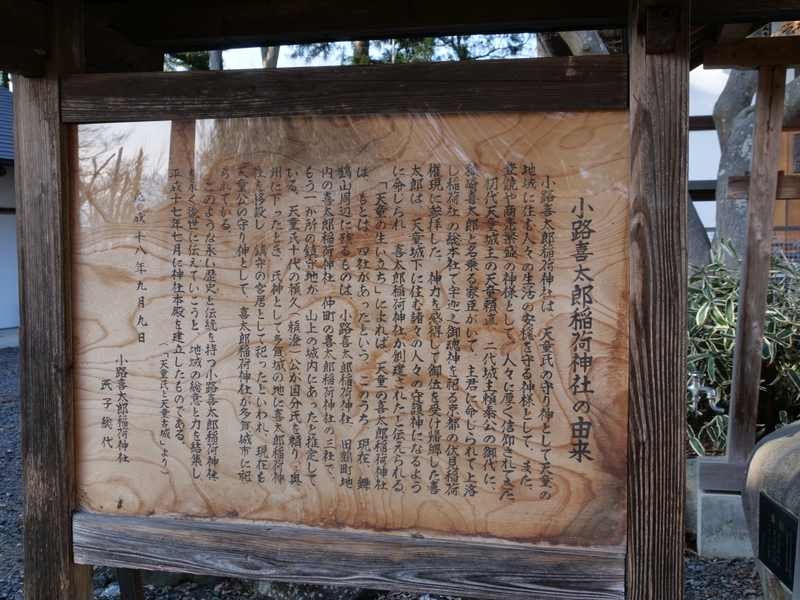 小路喜太郎稲荷神社の由来
小路喜太郎稲荷神社は、天童氏の守り神として天童の
地域に住む人々の生活の安穏を守る神様として、また、
業競や商売繁盛の神様として、人々に厚く信仰されてきた。
初代天童城主の天童頼直、二代城主頼泰公の御代に、
崎喜太郎と名乗る家臣がいて、主君に命じられて上洛
し稲荷社の総本社で宇迦之御魂神を祀る京都の伏見稲荷
権現に参拝した。神力を感得して御位を受け帰郷した喜
太郎は、天童城下に住む諸々の人々の守護神になるよう
に命じられ、喜太郎稲荷神社が創建されたと伝えられる。
「天童の生い立ち」によれば、天童の喜太郎稲荷神社
は、もとは、四社があったという。このうち、現在、舞
鶴山周辺に残るものは、小路喜太郎稲荷神社、田鶴町地
内の喜太郎稲荷神社、仲町の喜太郎稲荷神社の三社で、
もう一か所の鎮守地が、山上の城内にあったと推定して
いる。天童氏十代の頼久（頼澄）公が国分氏を頼り、奥
州に下ったとき、氏神として多賀城の地に喜太郎稲荷神
社を移設し、鎮守の宮居として祀ったといわれ、現在も
天童公の守り神として、喜太郎稲荷神社が多賀城市に祀
られている。
（「天童氏と天童古城」より）
このような永い歴史と伝統を持つ小路喜太郎稲荷神社
を永く後世に伝えていこうと、地域の総意と力を結集し、
平成十七年七月に神社本殿を建立したものである。
平成十八年九月九日
小路喜太郎稲荷神社
氏子総代